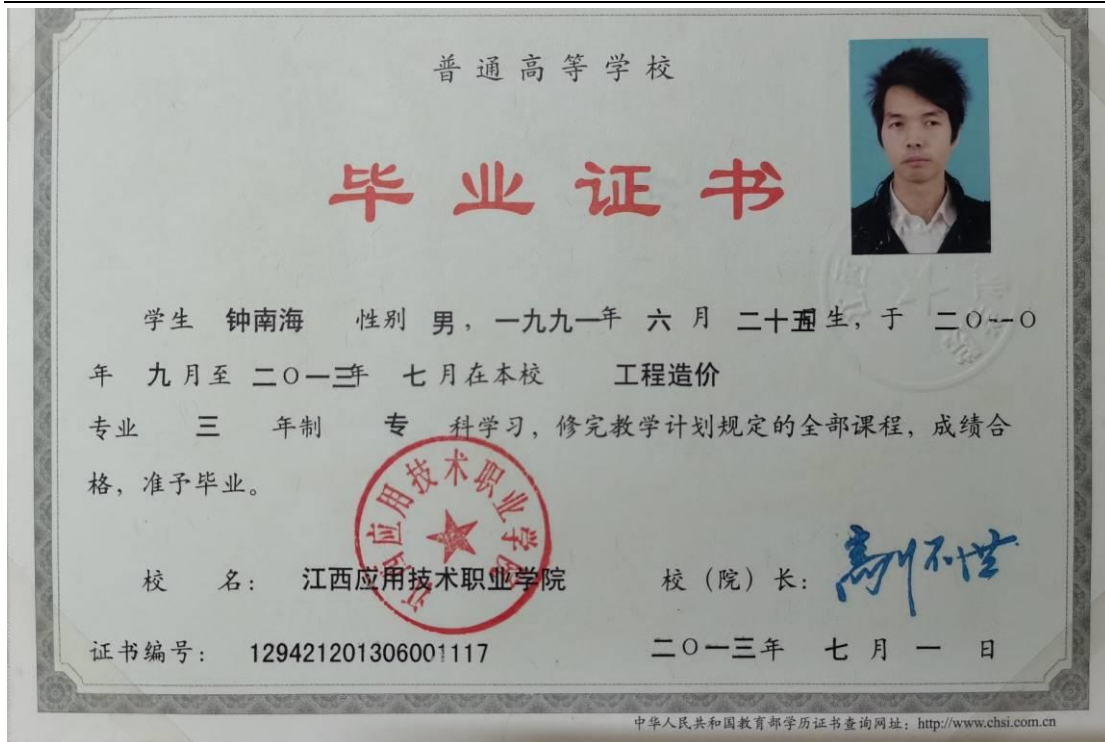 普通高等学校
毕业证书
学生 钟南海 性别 男，一九九一年 六 月 二十五日生，于 二〇一〇
年 九月至 二〇一三年 七月在本校 工程造价
专业 三 年制 专 科学习，修完教学计划规定的全部课程，成绩合
格，准予毕业。
江西应用技术职业学院
校 名： 江西应用技术职业学院 校（院）长：
证书编号： 129421201306001117 二〇一三年 七 月 一 日
中华人民共和国教育部学历证书查询网址：http://www.chsi.com.cn